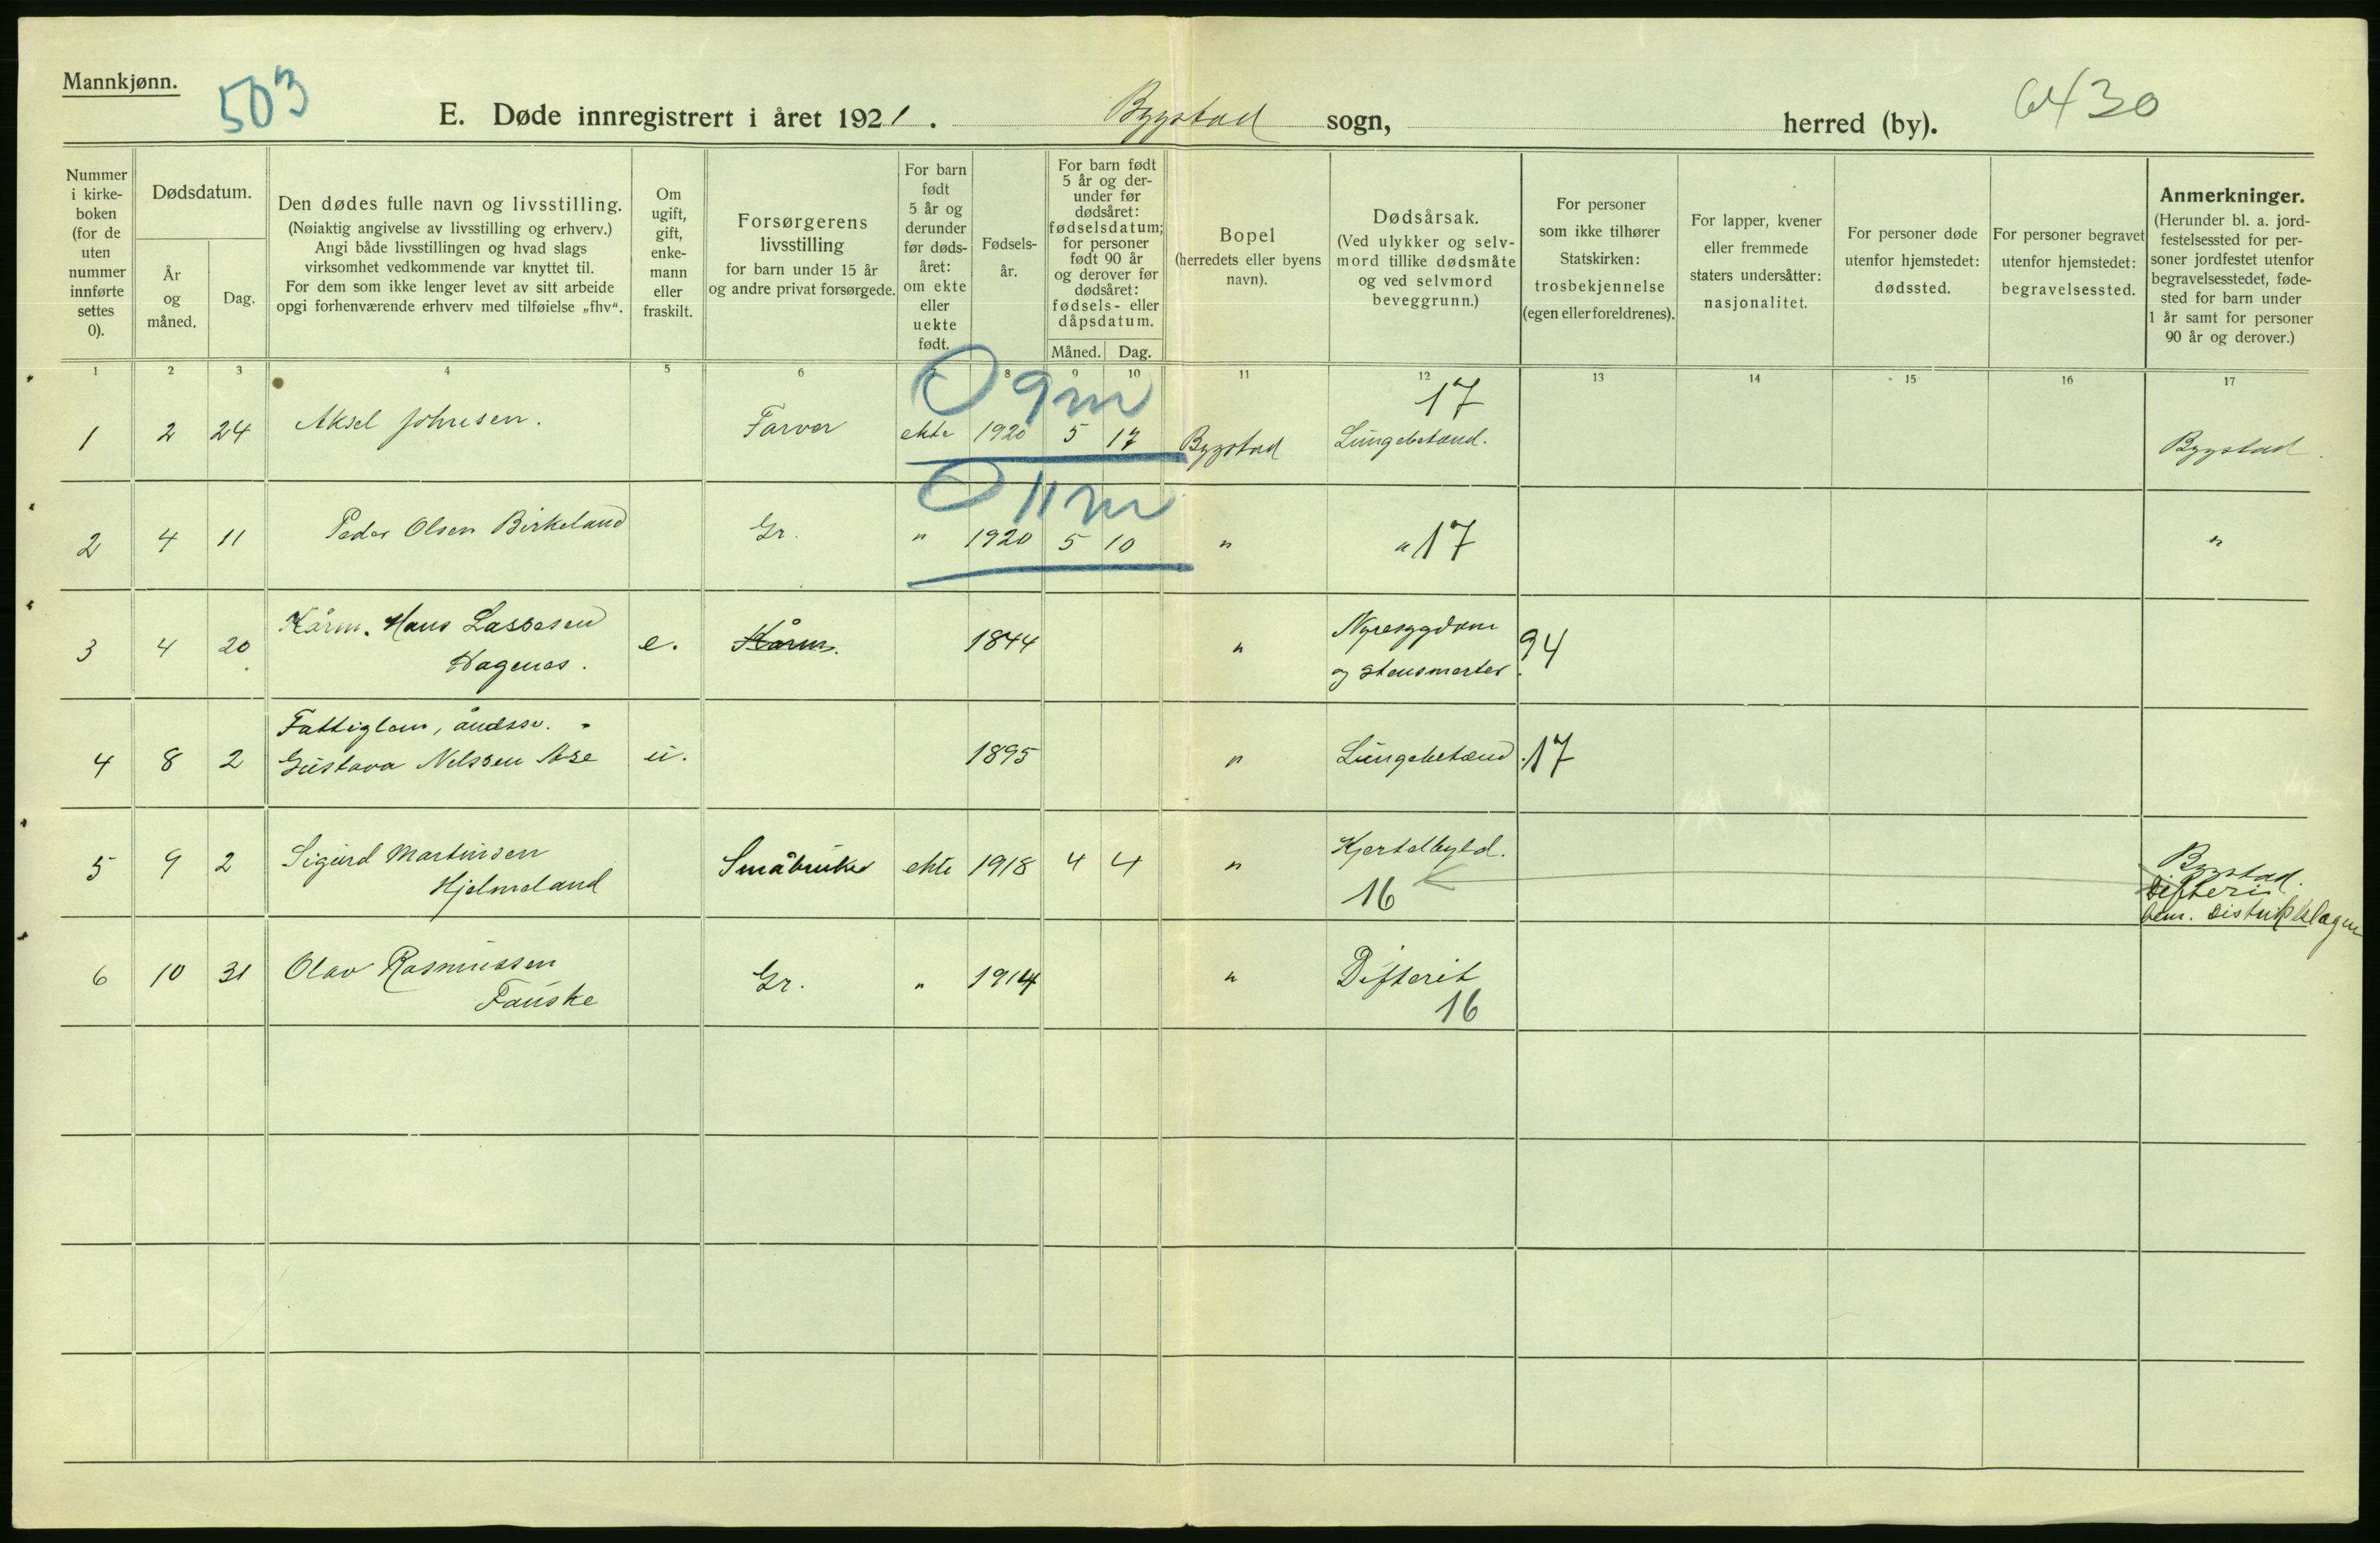 Mannkjønn.
503
E. Døde innregistrert i året 1921. Bygstad sogn, herred (by).
6430
Nummer
i kirke-
boken
(for de
uten
nummer
innførte
settes
0).
Dødsdatum.
År
og
måned.
Dag.
Den dødes fulle navn og livsstilling.
(Nøiaktig angivelse av livsstilling og erhverv.)
Angi både livsstillingen og hvad slags
virksomhet vedkommende var knyttet til.
For dem som ikke lenger levet av sitt arbeide
opgi forhenværende erhverv med tilføielse „fhv“.
Om
ugift,
gift,
enke-
mann
eller
fraskilt.
Forsørgerens
livsstilling
for barn under 15 år
og andre privat forsørgede.
For barn
født
5 år og
derunder
før døds-
året:
om ekte
eller
uekte
født.
Fødsels-
år.
For barn født
5 år og der-
under før
dødsåret:
fødselsdatum;
for personer
født 90 år
og derover før
dødsåret:
fødsels- eller
dåpsdatum.
Måned. Dag.
Bopel
(herredets eller byens
navn).
Dødsårsak.
(Ved ulykker og selv-
mord tillike dødsmåte
og ved selvmord
beveggrunn.)
For personer
som ikke tilhører
Statskirken:
trosbekjennelse
(egen eller foreldrenes).
For lapper, kvener
eller fremmede
staters undersåtter:
nasjonalitet.
For personer døde
utenfor hjemstedet:
dødssted.
For personer begravet
utenfor hjemstedet:
begravelsessted.
Anmerkninger.
(Herunder bl. a. jord-
festelsessted for per-
soner jordfestet utenfor
begravelsesstedet, føde-
sted for barn under
1 år samt for personer
90 år og derover.)
1 2 3 4 5 6 8 9 10 11 12 13 14 15 16 17
0 9m
17
1 2 24 Aksel Johnsen. Farver ekte 1920 5 17 Bygstad Lungebetænd. Bygstad.
0 11m
2 4 11 Peder Olsen Birkeland Gr. " 1920 5 10 " " 17 "
Kårm. Hans Lassesen
3 4 20 Hagenes. e. Kårm. 1844 " Nyresygdom 94
og stensmerter.
Fattiglem, åndssv.
4 8 2 Gustava Nelssen Åse u. 1895 " Lungebetænd. 17
5 9 2 Sigurd Martinsen Småbruker ekte 1918 4 4 " Kjertelbyld. Bygstad.
Hjelmeland
16
Difteri
bem. Distriktslægen
6 10 31 Olav Rasmussen Gr. " 1914 " Difterit
Fauske
16